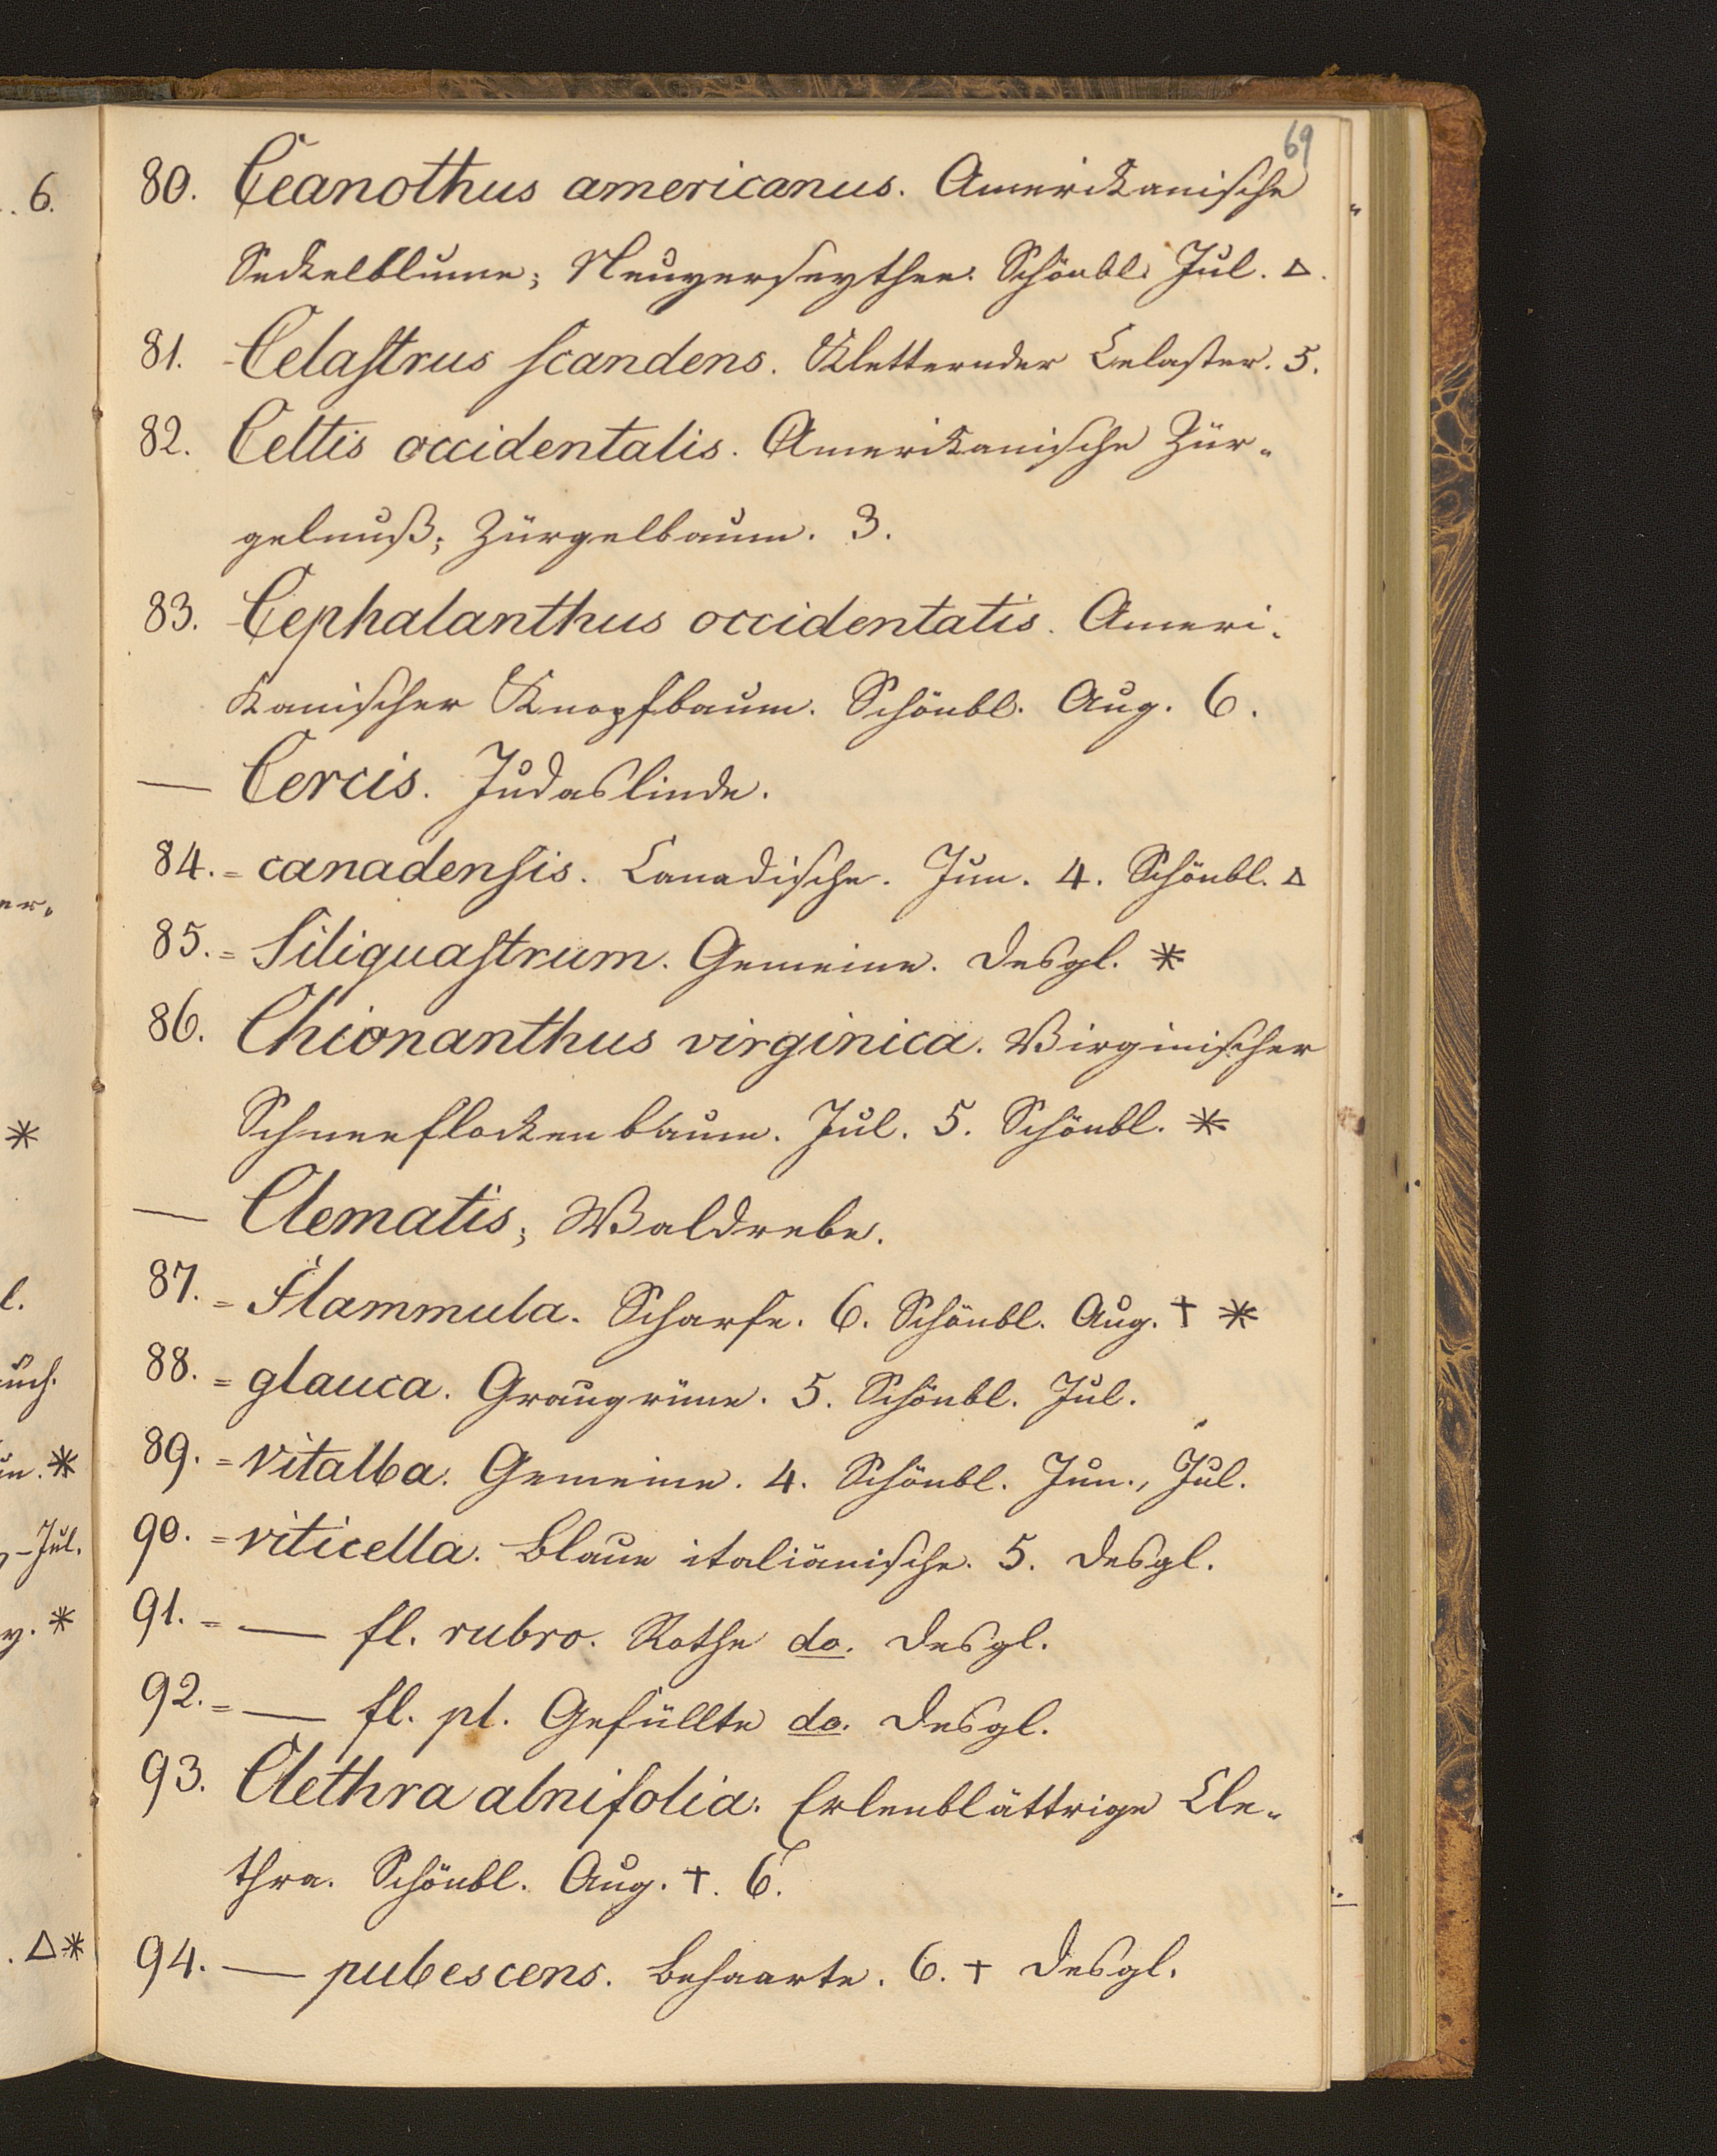 69
80. Ceanothus americanus. Amerikanische
Seckelblume; Neuyerseythee. Schönbl. Jul. Δ.
81. Celaſtrus ſcandens. Kletternder Celaster. 5.
82. Celtis occidentalis. Amerikanische Zür-
gelnuß; Zürgelbaum. 3.
83. Cephalanthus occidentatis. Ameri-
kanischer Knopfbaum. Schönbl. Aug. 6.
— Cercis. Judaslinde.
84. = canadenſis. Canadische. Jun. 4. Schönbl. Δ
85. = Siliquaſtrum. Gemeine. Desgl. *
86. Chionanthus virginica. Virginischer
Schneeflockenbaum. Jul. 5. Schönbl. *
— Clematis; Waldrebe.
87. = Flammula. Scharfe. 6. Schönbl. Aug. † *
88. = glauca. Graugrüne. 5. Schönbl. Jul.
89. = Vitalba. Gemeine. 4. Schönbl. Jun., Jul.
90. = viticella. Blaue italiänische. 5. Desgl.
91. = — fl. rubro. Rothe do. Desgl.
92. = — fl. pl. Gefüllte do. Desgl.
93. Clethra alnifolia. Erlenblättrige Cle-
thra. Schönbl. Aug. †. 6.
94. — pubescens. Behaarte. 6. † Desgl.